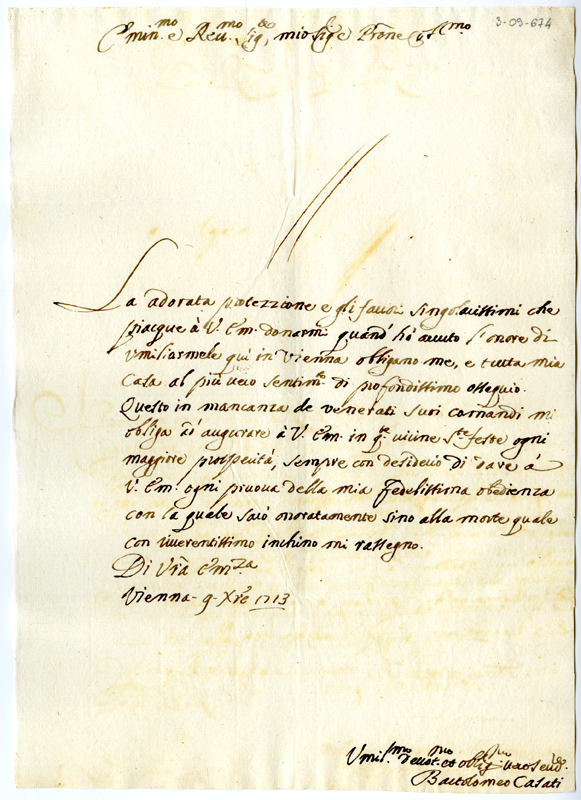 3-09-674
Emin.mo e Reu.mo Sig.re, mio Sig.e e Prone Col.mo
La adorata protezzione e gli fauori singolarissimi che
piacque à V. Em. donarmi quand' hò auuto l'onore di
Vmiliarmele quì in Vienna obligano me, e tutta mia
Casa al più uero sentim.to di profondissimo ossequio.
Questo in mancanza de venerati suoi comandi mi
obliga ad augurare à V. Em. in q.te uicine S.te feste ogni
maggiore prosperità, sempre con desiderio di dare à
V. Em. ogni pruoua della mia fedelissima obedienza
con la quale sarò onoratamente sino alla morte quale
con riuerentissimo inchino mi rassegno.
Di Vrà Em.za
Vienna - 9 - Xre 1713
Vmil.mo deuot.mo et oblig.mo uero seru.re
Bartolomeo Casati